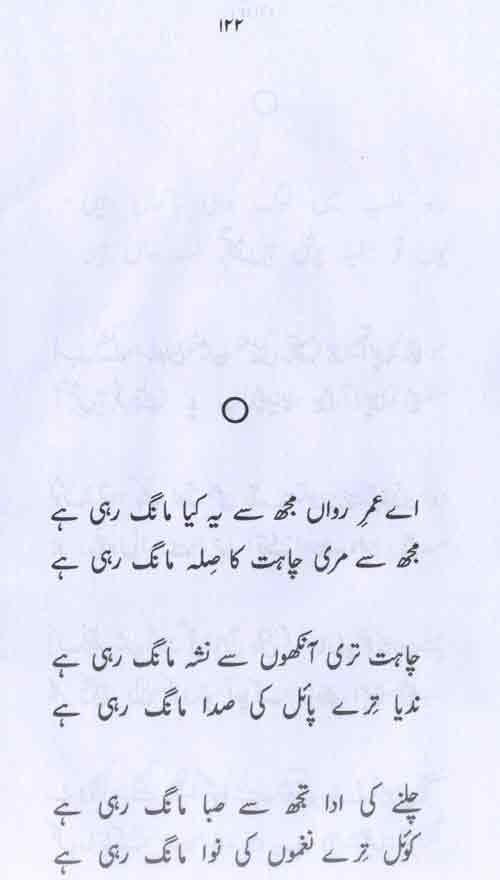 ۱۲۲
اے عمرِ رواں مجھ سے یہ کیا مانگ رہی ہے
مجھ سے مری چاہت کا صِلہ مانگ رہی ہے
چاہت تری آنکھوں سے نشہ مانگ رہی ہے
ندیا تِرے پائل کی صدا مانگ رہی ہے
چلنے کی ادا تجھ سے صبا مانگ رہی ہے
کوئل تِرے نغموں کی نوا مانگ رہی ہے